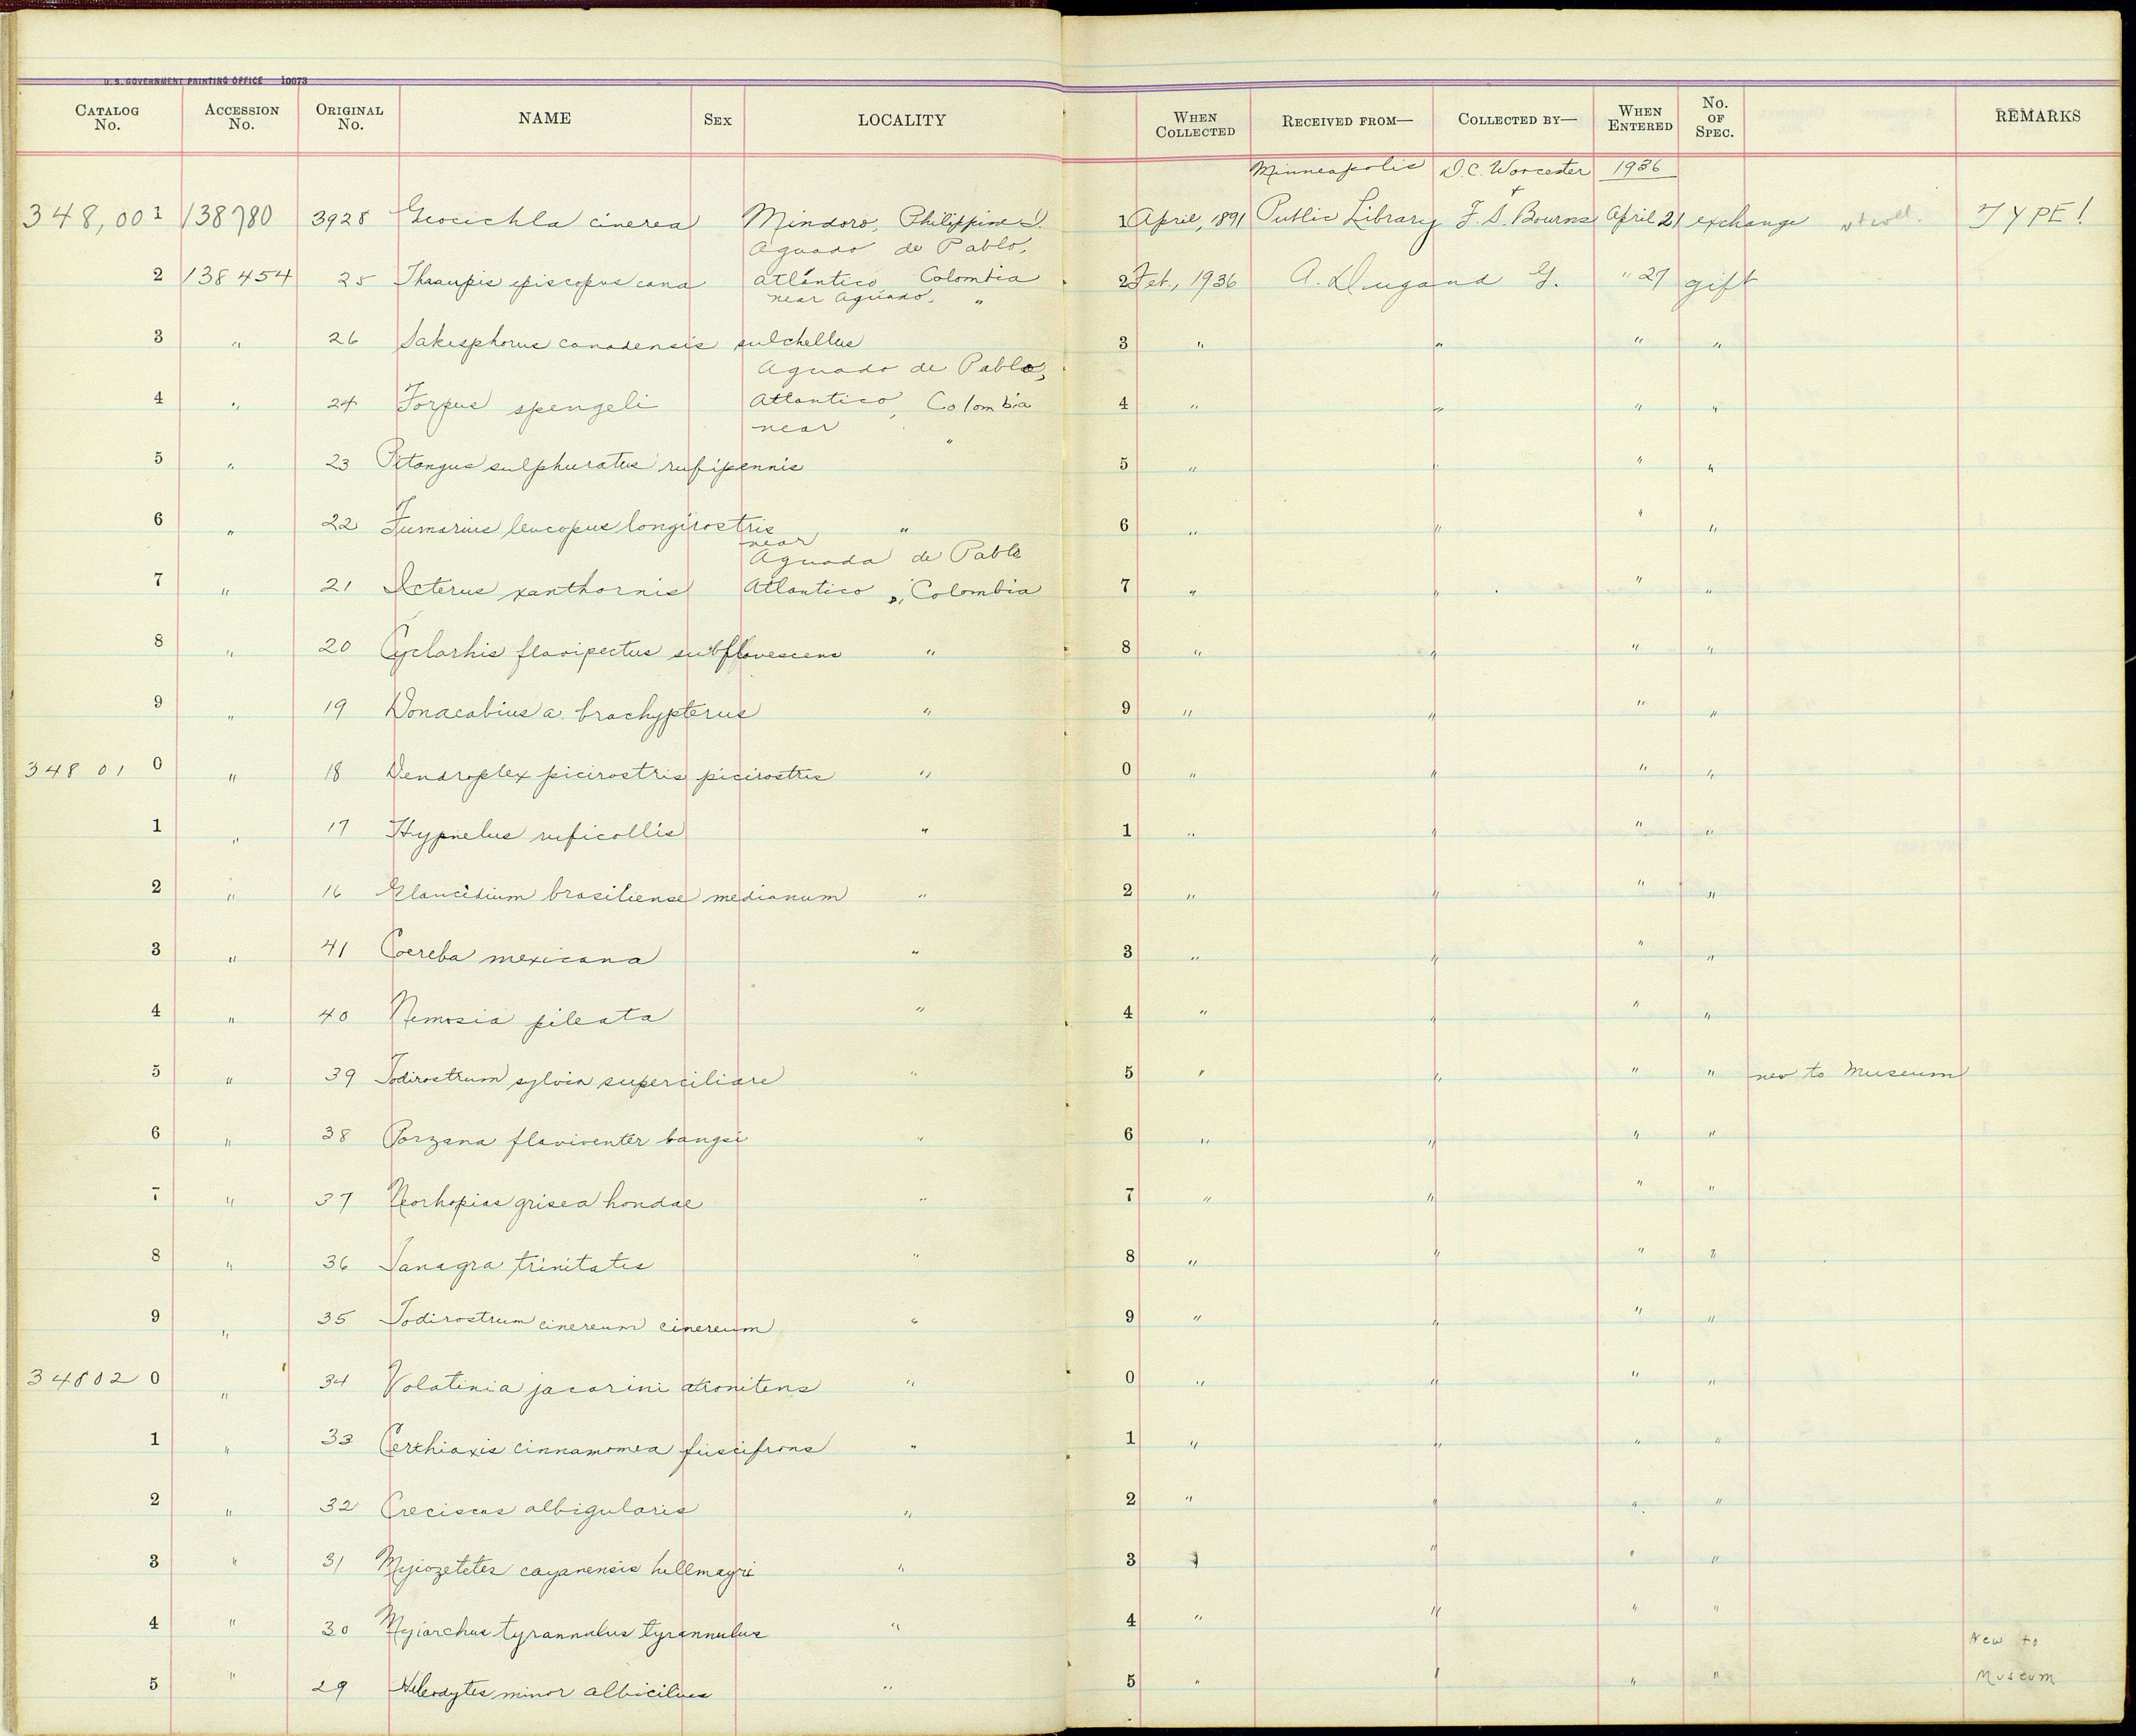 U. S. GOVERNMENT PRINTING OFFICE 10673
CATALOG No. ACCESSION No. ORIGINAL No. NAME SEX LOCALITY WHEN COLLECTED RECEIVED FROM— COLLECTED BY— WHEN ENTERED No. OF SPEC. REMARKS
Minneapolis D.C. Worcester 1936
+
348,001 138780 3928 Geocichla cinerea Mindoro, Philippine Is. 1 April, 1891 Public Library F. S. Bourns April 21 exchange TYPE!
Aguado de Pablo,
2 138454 25 Thraupis episcopus cana Atlantico Colombia 2 Feb., 1936 A. Dugand G. " 27 gift
near Aguado, "
3 " 26 Sakesphorus canadensis pulchellus 3 " " " "
Aguado de Pablo,
4 " 24 Forpus spengeli Atlantico, Colombia 4 " " " "
near "
5 " 23 Pitangus sulphuratus rufipennis 5 " " " "
6 " 22 Furnarius leucopus longirostris " 6 " " " "
near
Aguada de Pablo
7 " 21 Icterus xanthornis Atlantico, Colombia 7 " " " "
8 " 20 Cyclarhis flavipectus subflavescens " 8 " " " "
9 " 19 Donacobius a. brachypterus " 9 " " " "
34801 0 " 18 Dendroplex picirostris picirostris " 0 " " " "
1 " 17 Hypnelus ruficollis " 1 " " " "
2 " 16 Glaucidium brasiliense medianum " 2 " " " "
3 " 41 Coereba mexicana " 3 " " " "
4 " 40 Nemosia pileata " 4 " " " "
5 " 39 Todirostrum sylvia superciliare " 5 " " " " new to Museum
6 " 38 Porzana flaviventer bangsi " 6 " " " "
7 " 37 Neorhopias grisea hondae " 7 " " " "
8 " 36 Tanagra trinitatis " 8 " " " "
9 " 35 Todirostrum cinereum cinereum " 9 " " " "
34802 0 " 34 Volatinia jacarini atronitens " 0 " " " "
1 " 33 Certhiaxis cinnamomea fuscifrons " 1 " " " "
2 " 32 Creciscus albigularis " 2 " " " "
3 " 31 Myiozetetes cayanensis hellmayri " 3 " " " "
4 " 30 Myiarchus tyrannulus tyrannulus " 4 " " " "
New to
5 " 29 Heleodytes minor albicilius " 5 " " " " Museum